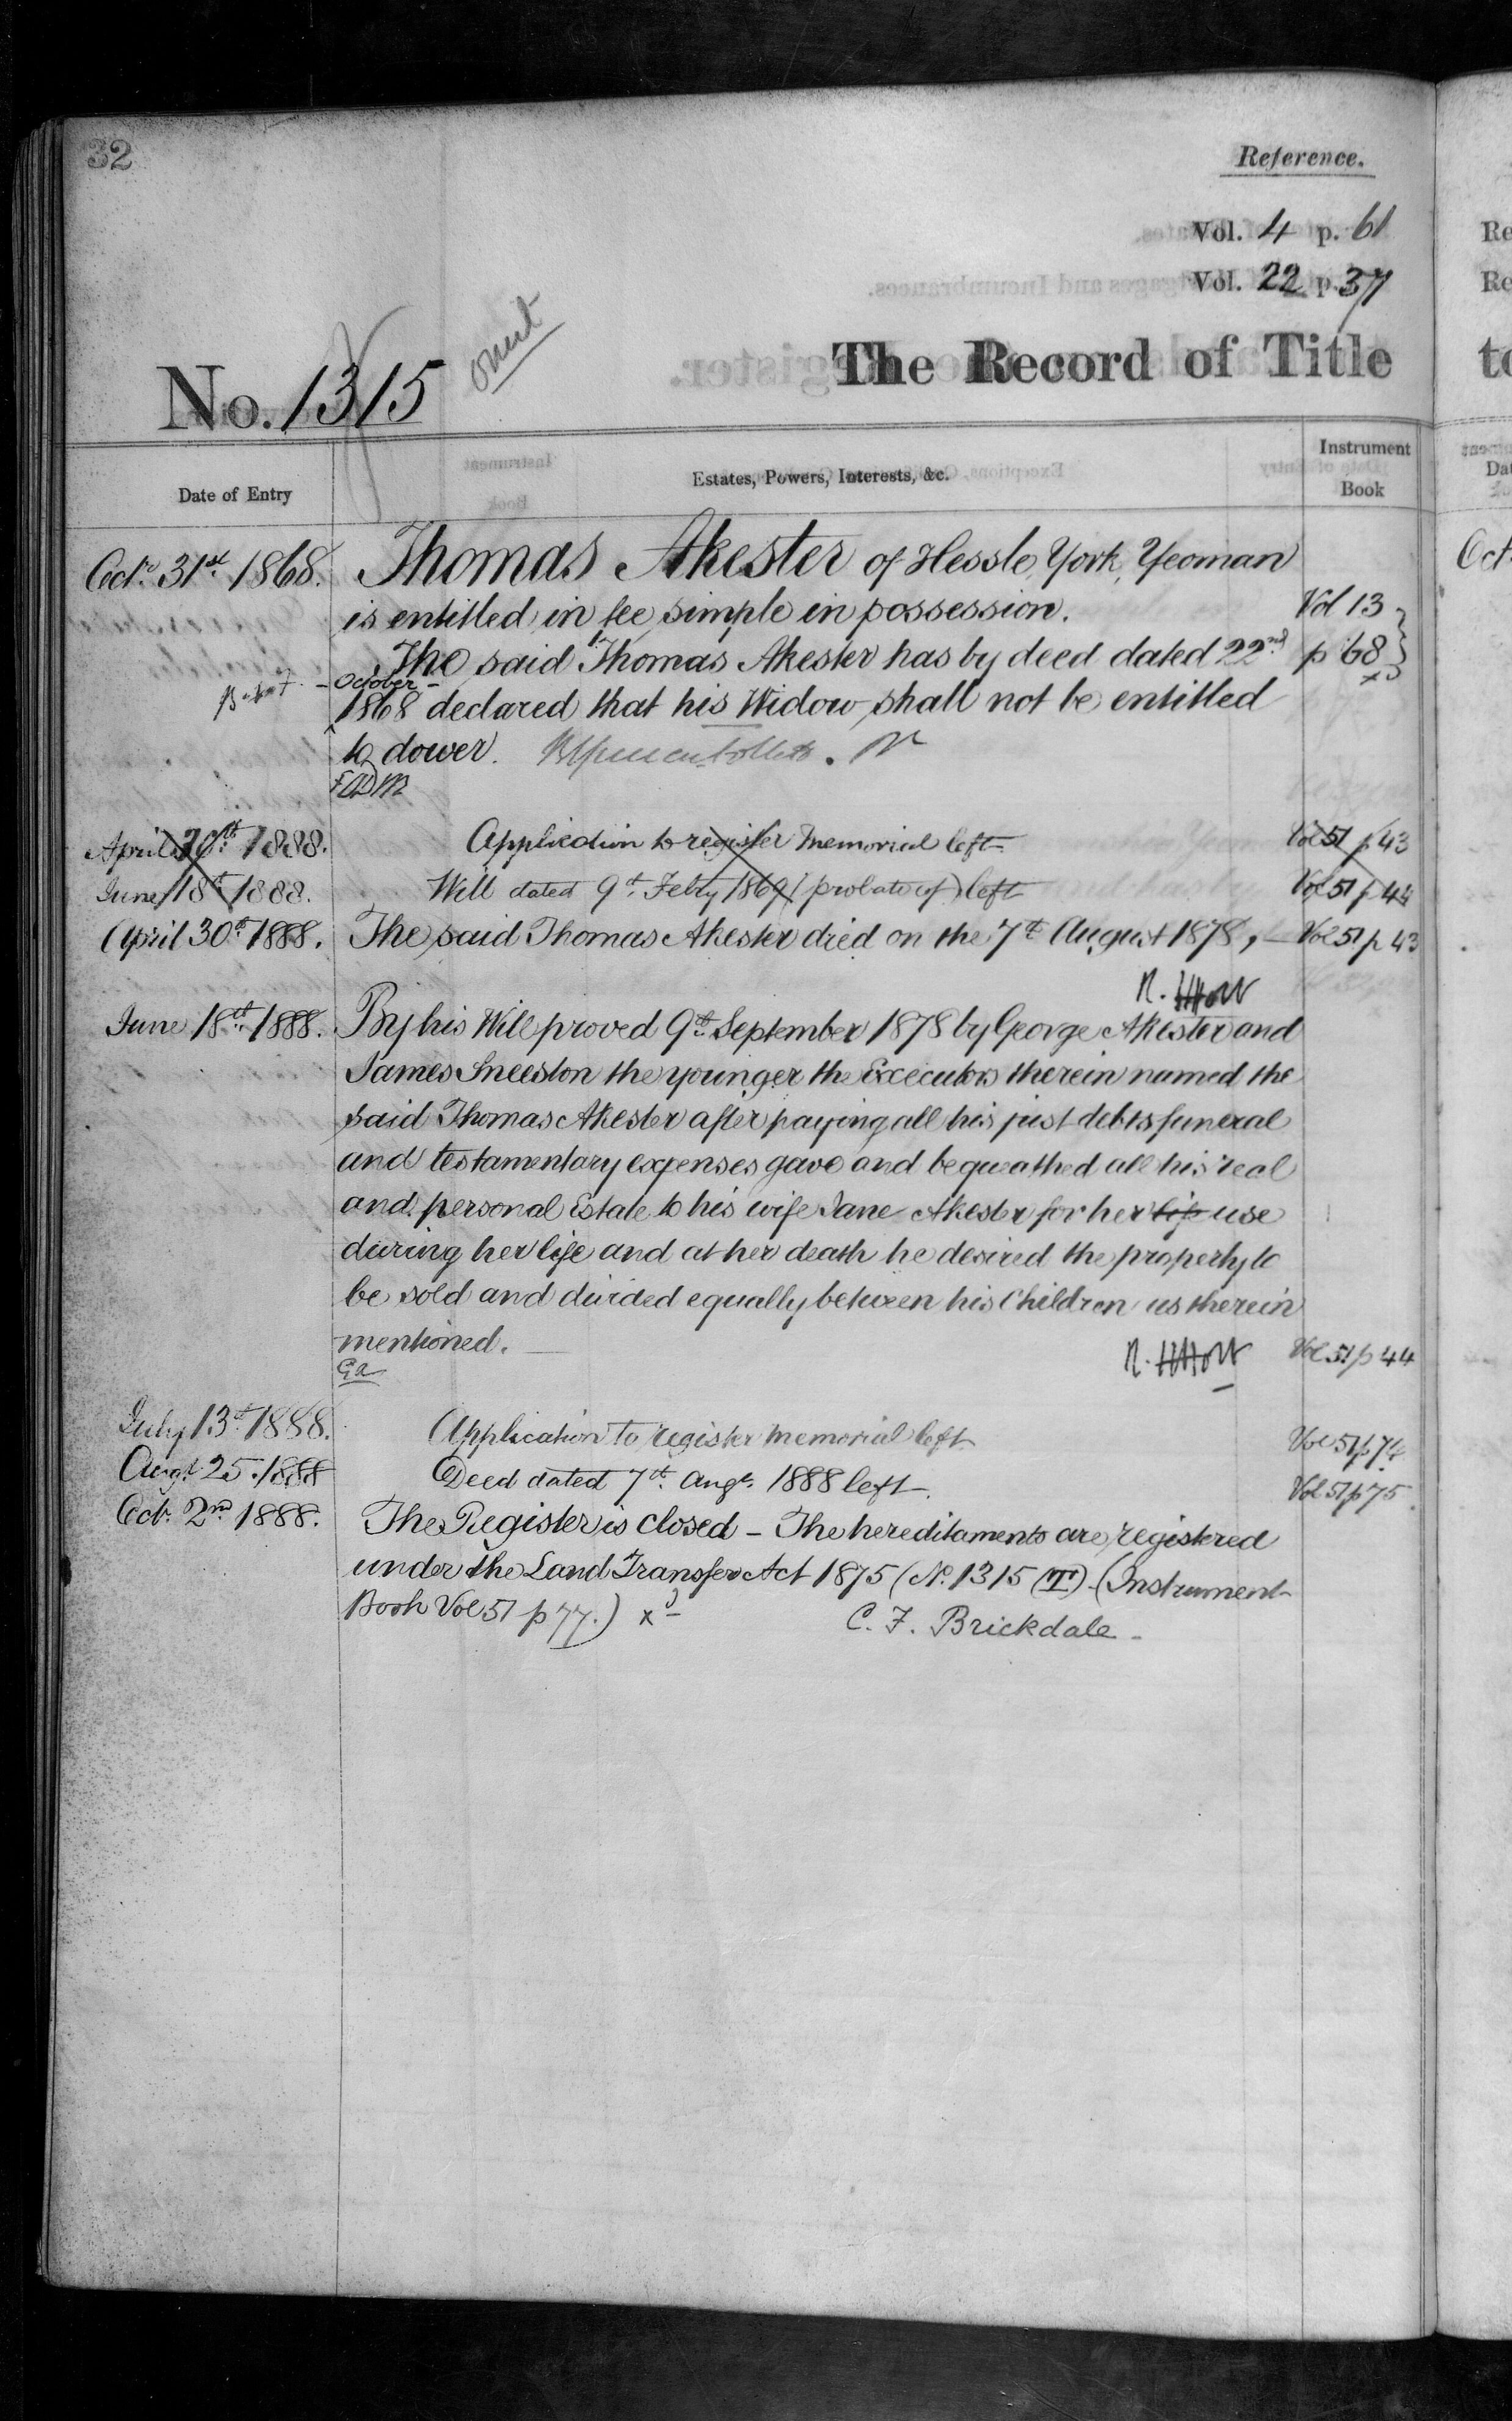 32
Reference.
Vol. 4 p. 61
Vol. 22 p. 37
omit
No. 1315
The Record of Title
Date of Entry
Estates, Powers, Interests, &c.
Instrument Book
Octr 31st 1868. Thomas Akester of Hessle, York, Yeoman
is entitled in fee simple in possession. Vol 13
The said Thomas Akester has by deed dated 22nd p 68
October
1868 declared that his Widow shall not be entitled
to dower.
April 30th 1888. Application to register memorial left Vol 51 p 43
June 18th 1888. Will dated 9th Febry 1869 (probate of) left Vol 51 p 44
April 30th 1888. The said Thomas Akester died on the 7th August 1878, Vol 51 p 43
June 18th 1888. By his Will proved 9th September 1878 by George Akester and
James Sneeston the younger the Executors therein named the
said Thomas Akester after paying all his just debts funeral
and testamentary expenses gave and bequeathed all his real
and personal Estate to his wife Jane Akester for her life use
during her life and at her death he desired the property to
be sold and divided equally between his Children as therein
mentioned. Vol 51 p 44
July 13th 1888. Application to register memorial left Vol 51 p 74
Augt 25. 1888 Deed dated 7th Augt. 1888 left. Vol 51 p 75
Oct. 2nd 1888. The Register is closed – The hereditaments are registered
under the Land Transfer Act 1875 (No. 1315 (T) (Instrument
Book Vol 51 p 77.) x
C. F. Brickdale